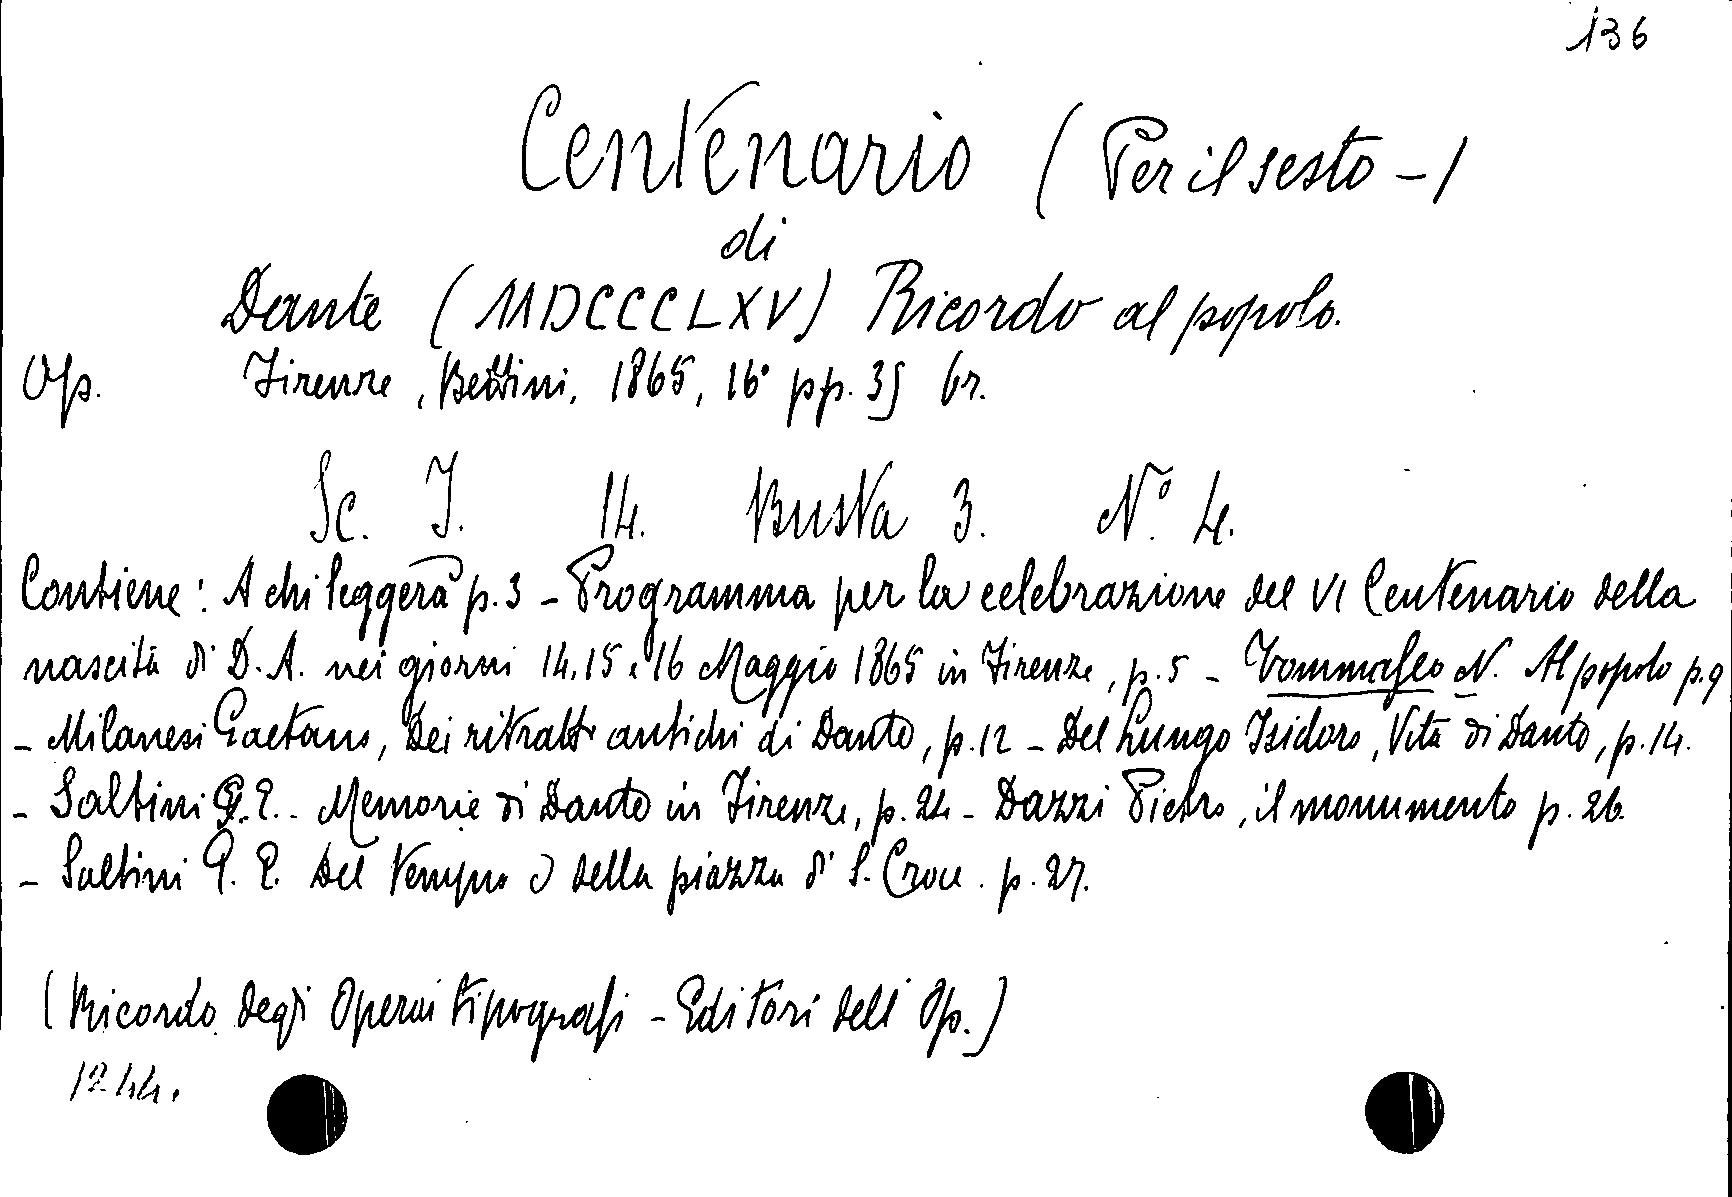 136
Centenario (Per il sesto -)
di
Dante (MDCCCLXV) Ricordo al popolo.
Op. Firenze, Bettini, 1865, 16° pp. 35 br.
Sc. I. 14. Busta 3. N.° 4.
Contiene: A chi leggerà p. 3 - Programma per la celebrazione del VI Centenario della
nascita di D. A. nei giorni 14, 15 e 16 Maggio 1865 in Firenze, p. 5 - Tommaseo N. Al popolo p. 9
- Milanesi Gaetano, Dei ritratti antichi di Dante, p. 12 - Del Lungo Isidoro, Vita di Dante, p. 14.
- Saltini G. E. - Memorie di Dante in Firenze, p. 24 - Dazzi Pietro, il monumento p. 26.
- Saltini G. E. Del tempio e della piazza di S. Croce. p. 27.
(Ricordo degli Operai tipografi - Editori dell' Op.)
1244.